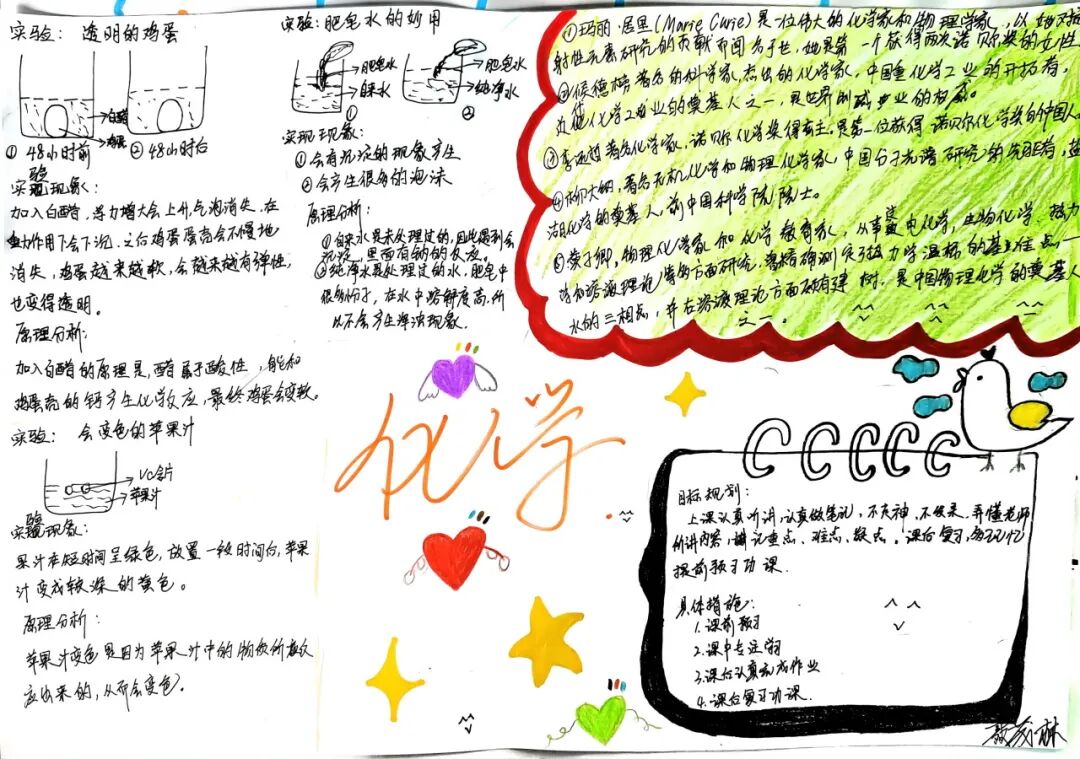 实验：透明的鸡蛋
白醋
鸡蛋
① 48小时前 ② 48小时后
实验现象：
加入白醋，浮力增大会上升，气泡消失，在
作用下会下沉，之后鸡蛋蛋壳会不慢地
消失，鸡蛋越来越软，会越来越有弹性，
也变得透明。
原理分析：
加入白醋的原理是，醋属于酸性，能和
鸡蛋壳的钙产生化学反应，最终鸡蛋会变软。
实验：会变色的苹果汁
VC含片
苹果汁
实验现象：
果汁在短时间呈绿色，放置一段时间后，苹果
汁变成较深的黄色。
原理分析：
苹果汁变色是因为苹果汁中的物质所
应出来的，从而会变色。
实验：肥皂水的妙用
肥皂水
自来水
①
肥皂水
纯净水
②
实验现象：
①会有沉淀的现象产生
②会产生很多的泡沫
原理分析：
①自来水是未处理过的，因此遇到会
沉淀，里面有钠的反应。
②纯净水是处理过的水，肥皂中
很多分子，在水中溶解度高，所
以不会产生浑浊现象。
①玛丽·居里(Marie Curie)是一位伟大的化学家和物理学家，以她对放
射性元素研究的贡献而闻名于世，她是第一个获得两次诺贝尔奖的女性
②侯德榜 著名的科学家，杰出的化学家，中国重化学工业的开拓者，
近代化学工业的奠基人之一，是世界制碱业的权威。
③李远哲 著名化学家，诺贝尔化学奖得主，是第一位获得诺贝尔化学奖的中国人
④柳大纲，著名无机化学和物理化学家，中国分子光谱研究的先驱者，盐
湖化学的奠基人，前中国科学院院士。
⑤黄子卿，物理化学家和化学教育家，从事电化学，生物化学，热力
和溶液理论等多方面研究，精确测定了热力学温标的基准点——
水的三相点，并在溶液理论方面颇有建树，是中国物理化学的奠基人
之一。
化学
目标规划：
上课认真听讲，认真做笔记，不走神，不发呆，弄懂老师
所讲内容，标记重点、难点、疑点。课后复习，多巩忆
提前预习功课。
具体措施：
1.课前预习
2.课中专注学习
3.课后认真完成作业
4.课后复习功课.